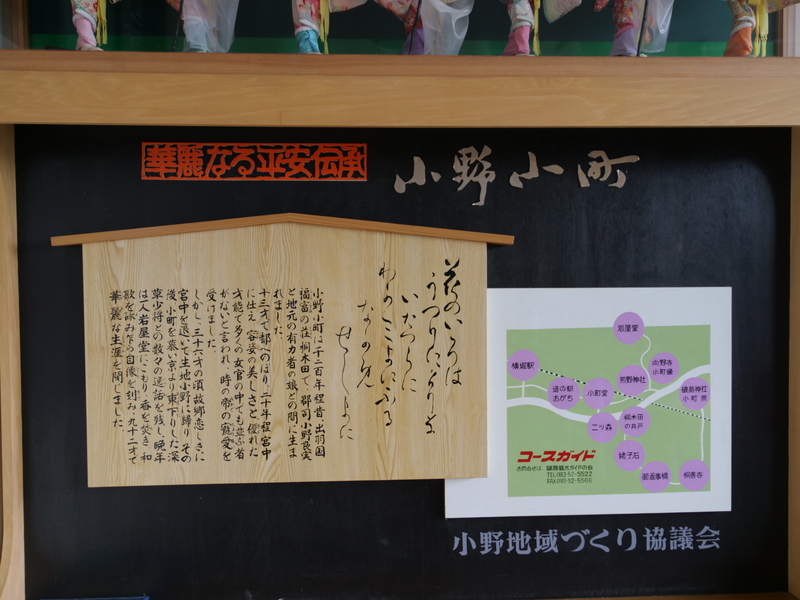 華麗なる平安伝承
小野小町
花のいろは
うつりにけりな
いたづらに
わがみよにふる
ながめ
せしまに
小野小町は千二百年程昔、出羽国
福富の荘桐木田で、郡司小野良実
と地元の有力者の娘との間に生ま
れました。
十三才で都へのぼり、二十年程宮中
に仕え、容姿の美しさと優れた
才能で多くの女官の中でも並ぶ者
がないと言われ、時の帝の寵愛を
受けました。
しかし、三十六才の頃故郷恋しさに
宮中を退いて生地小野に帰り、その
後、小町を慕い京より東下りした深
草少将との数々の逸話を残し、晩年
は一人岩屋堂にこもり、香を焚き、和
歌を詠み乍ら自像を刻み、九十二才で
華麗な生涯を閉じました。
岩屋堂
横堀駅
向野寺
小町像
熊野神社
道の駅
おがち
小町堂
磯前神社
小町泉
二ツ森
桐木田
の井戸
姥子石
御返事橋
桐善寺
コースガイド
小野地域づくり協議会